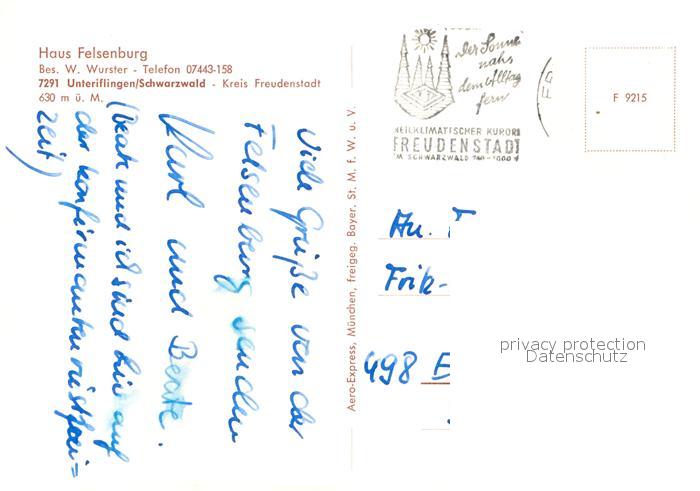 Haus Felsenburg
Bes. W. Wurster - Telefon 07443-158
7291 Unteriflingen/Schwarzwald - Kreis Freudenstadt
630 m ü. M.
Viele Grüße von der
Felsenburg senden
Karl und Beate.
(Beate und ich sind hier auf
der Konfirmandenrüstfrei=
zeit)
Aero-Express, München, freigeg. Bayer. St. M. f. W. u. V.
Der Sonne
nah
dem Alltag
fern
HEILKLIMATISCHER KURORT
FREUDENSTADT
IM SCHWARZWALD 740-1000 M
F 9215
An.
Fritz-
498
privacy protection
Datenschutz